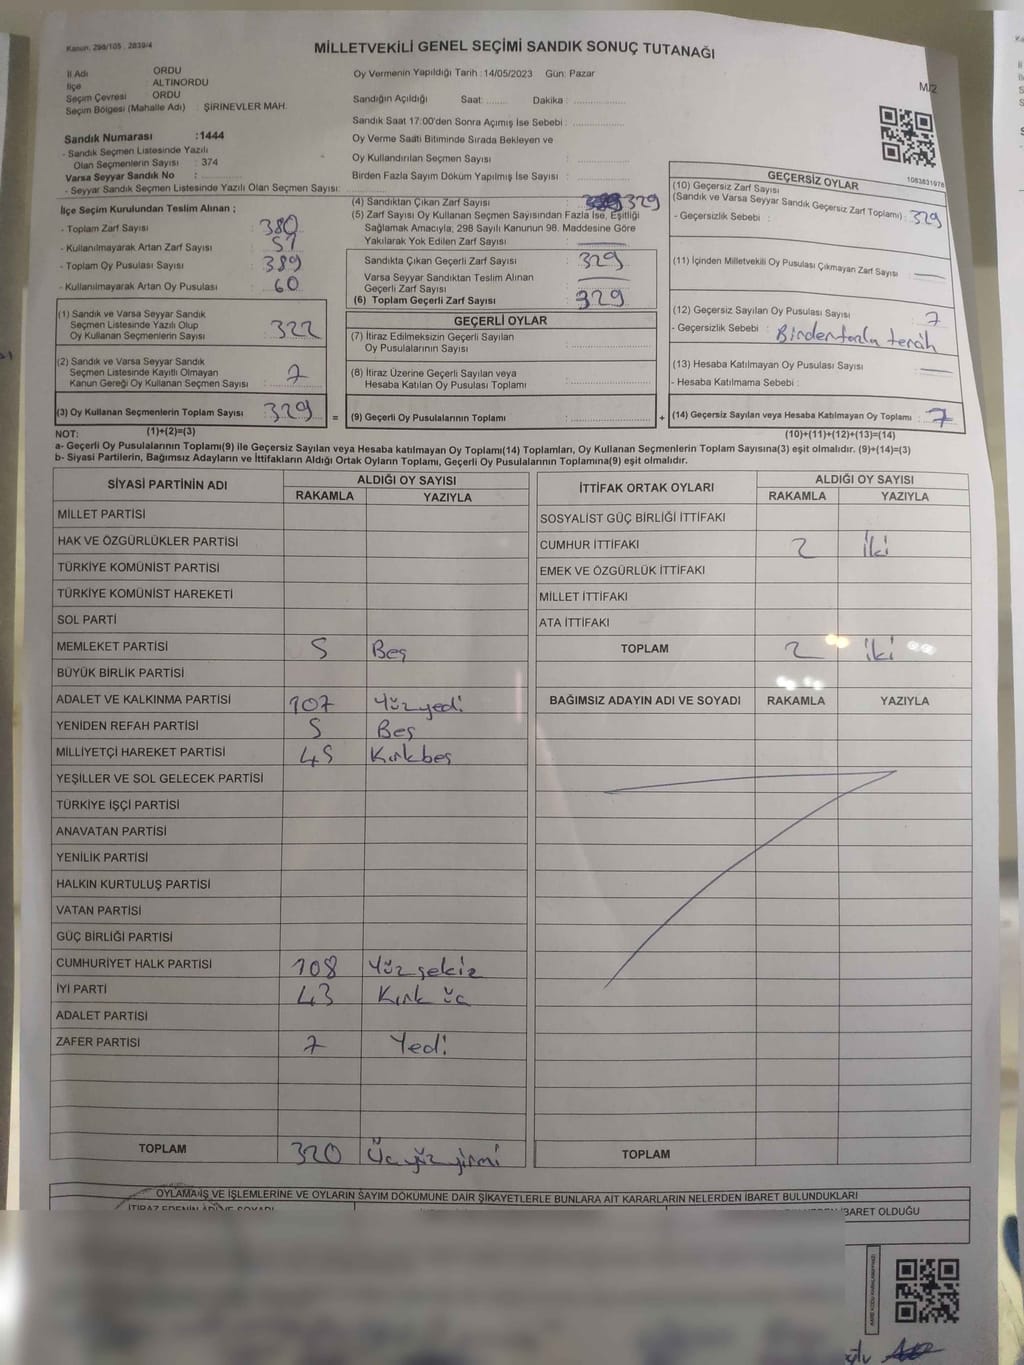 Kanun. 298/105 . 2839/4
MİLLETVEKİLİ GENEL SEÇİMİ SANDIK SONUÇ TUTANAĞI
M/2
İl Adı ORDU
İlçe ALTINORDU
Seçim Çevresi ORDU
Seçim Bölgesi (Mahalle Adı) : ŞİRİNEVLER MAH.
Oy Vermenin Yapıldığı Tarih : 14/05/2023 Gün: Pazar
Sandığın Açıldığı Saat: ........ Dakika : ................
Sandık Saat 17:00'den Sonra Açımış İse Sebebi : ................
Oy Verme Saati Bitiminde Sırada Bekleyen ve
Oy Kullandırılan Seçmen Sayısı : ................
Birden Fazla Sayım Döküm Yapılmış İse Sayısı : ................
Sandık Numarası : 1444
- Sandık Seçmen Listesinde Yazılı
Olan Seçmenlerin Sayısı : 374
Varsa Seyyar Sandık No :
- Seyyar Sandık Seçmen Listesinde Yazılı Olan Seçmen Sayısı: ................
İlçe Seçim Kurulundan Teslim Alınan ;
- Toplam Zarf Sayısı : 380
- Kullanılmayarak Artan Zarf Sayısı : 51
- Toplam Oy Pusulası Sayısı : 389
- Kullanılmayarak Artan Oy Pusulası : 60
(1) Sandık ve Varsa Seyyar Sandık
Seçmen Listesinde Yazılı Olup
Oy Kullanan Seçmenlerin Sayısı : 322
(2) Sandık ve Varsa Seyyar Sandık
Seçmen Listesinde Kayıtlı Olmayan
Kanun Gereği Oy Kullanan Seçmen Sayısı : 7
(3) Oy Kullanan Seçmenlerin Toplam Sayısı : 329 =
(1)+(2)=(3)
(4) Sandıktan Çıkan Zarf Sayısı : 329
(5) Zarf Sayısı Oy Kullanan Seçmen Sayısından Fazla İse, Eşitliği
Sağlamak Amacıyla, 298 Sayılı Kanunun 98. Maddesine Göre
Yakılarak Yok Edilen Zarf Sayısı :
Sandıkta Çıkan Geçerli Zarf Sayısı : 329
Varsa Seyyar Sandıktan Teslim Alınan
Geçerli Zarf Sayısı :
(6) Toplam Geçerli Zarf Sayısı : 329
GEÇERLİ OYLAR
(7) İtiraz Edilmeksizin Geçerli Sayılan
Oy Pusulalarının Sayısı :
(8) İtiraz Üzerine Geçerli Sayılan veya
Hesaba Katılan Oy Pusulası Toplamı :
(9) Geçerli Oy Pusulalarının Toplamı : +
1083831978
GEÇERSİZ OYLAR
(10) Geçersiz Zarf Sayısı
(Sandık ve Varsa Seyyar Sandık Geçersiz Zarf Toplamı) : 329
- Geçersizlik Sebebi :
(11) İçinden Milletvekili Oy Pusulası Çıkmayan Zarf Sayısı :
(12) Geçersiz Sayılan Oy Pusulası Sayısı : 7
- Geçersizlik Sebebi : Birden fazla tercih
(13) Hesaba Katılmayan Oy Pusulası Sayısı :
- Hesaba Katılmama Sebebi :
(14) Geçersiz Sayılan veya Hesaba Katılmayan Oy Toplamı : 7
(10)+(11)+(12)+(13)=(14)
NOT:
a- Geçerli Oy Pusulalarının Toplamı(9) ile Geçersiz Sayılan veya Hesaba katılmayan Oy Toplamı(14) Toplamları, Oy Kullanan Seçmenlerin Toplam Sayısına(3) eşit olmalıdır. (9)+(14)=(3)
b- Siyasi Partilerin, Bağımsız Adayların ve İttifakların Aldığı Ortak Oyların Toplamı, Geçerli Oy Pusulalarının Toplamına(9) eşit olmalıdır.
SİYASİ PARTİNİN ADI ALDIĞI OY SAYISI
RAKAMLA YAZIYLA
MİLLET PARTİSİ
HAK VE ÖZGÜRLÜKLER PARTİSİ
TÜRKİYE KOMÜNİST PARTİSİ
TÜRKİYE KOMÜNİST HAREKETİ
SOL PARTİ
MEMLEKET PARTİSİ 5 Beş
BÜYÜK BİRLİK PARTİSİ
ADALET VE KALKINMA PARTİSİ 107 Yüzyedi
YENİDEN REFAH PARTİSİ 5 Beş
MİLLİYETÇİ HAREKET PARTİSİ 45 Kırkbeş
YEŞİLLER VE SOL GELECEK PARTİSİ
TÜRKİYE İŞÇİ PARTİSİ
ANAVATAN PARTİSİ
YENİLİK PARTİSİ
HALKIN KURTULUŞ PARTİSİ
VATAN PARTİSİ
GÜÇ BİRLİĞİ PARTİSİ
CUMHURİYET HALK PARTİSİ 108 Yüzsekiz
İYİ PARTİ 43 Kırk üç
ADALET PARTİSİ
ZAFER PARTİSİ 7 Yedi
TOPLAM 320 Üçyüzyirmi
İTTİFAK ORTAK OYLARI ALDIĞI OY SAYISI
RAKAMLA YAZIYLA
SOSYALİST GÜÇ BİRLİĞİ İTTİFAKI
CUMHUR İTTİFAKI 2 İki
EMEK VE ÖZGÜRLÜK İTTİFAKI
MİLLET İTTİFAKI
ATA İTTİFAKI
TOPLAM 2 iki
BAĞIMSIZ ADAYIN ADI VE SOYADI RAKAMLA YAZIYLA
TOPLAM
OYLAMA İŞ VE İŞLEMLERİNE VE OYLARIN SAYIM DÖKÜMÜNE DAİR ŞİKAYETLERLE BUNLARA AİT KARARLARIN NELERDEN İBARET BULUNDUKLARI
İTİRAZ EDENİN ADI VE SOYADI
İBARET OLDUĞU